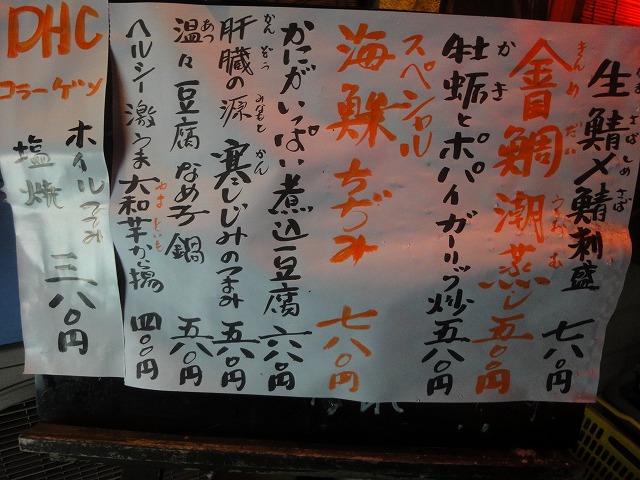 生鯖〆鯖刺盛 七八〇円
金目鯛潮蒸し 五八〇円
牡蛎とポパイガーリック炒 五八〇円
スペシャル
海鮮ちぢみ 七八〇円
かにがいっぱい煮込豆腐 六八〇円
肝臓の源 寒しじみのつまみ 五八〇円
温々豆腐なめ子鍋 五八〇円
ヘルシー激うま大和芋から揚 四八〇円
DHC
コラーゲン
ホイルつつみ
塩焼
三八〇円